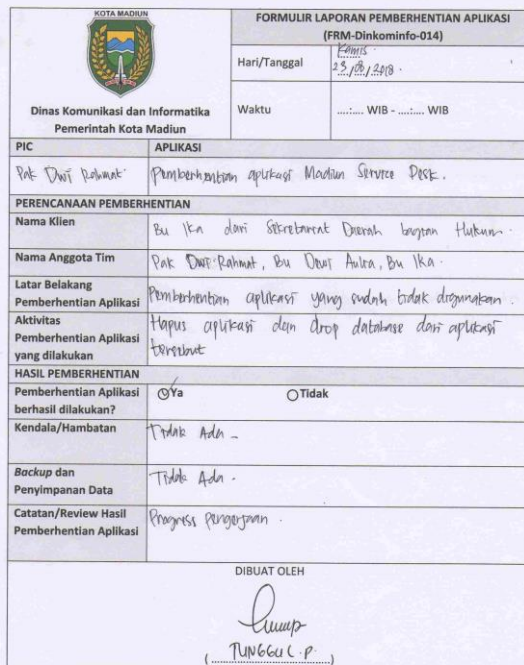 KOTA MADIUN
FORMULIR LAPORAN PEMBERHENTIAN APLIKASI
(FRM-Dinkominfo-014)
Hari/Tanggal
Kamis
23/08/2018.
Dinas Komunikasi dan Informatika
Pemerintah Kota Madiun
Waktu
....:.... WIB - ....:.... WIB
PIC
APLIKASI
Pak Dwi Rahmat
Pemberhentian aplikasi Madiun Service Desk.
PERENCANAAN PEMBERHENTIAN
Nama Klien
Bu Ika dari Sekretariat Daerah bagian Hukum.
Nama Anggota Tim
Pak Dwi Rahmat, Bu Dewi Aulia, Bu Ika.
Latar Belakang
Pemberhentian Aplikasi
Pemberhentian aplikasi yang sudah tidak digunakan.
Aktivitas
Pemberhentian Aplikasi
yang dilakukan
Hapus aplikasi dan drop database dari aplikasi
tersebut
HASIL PEMBERHENTIAN
Pemberhentian Aplikasi
berhasil dilakukan?
Ya
Tidak
Kendala/Hambatan
Tidak Ada -
Backup dan
Penyimpanan Data
Tidak Ada.
Catatan/Review Hasil
Pemberhentian Aplikasi
Progress Pengerjaan.
DIBUAT OLEH
( TUNGGUL.P. )